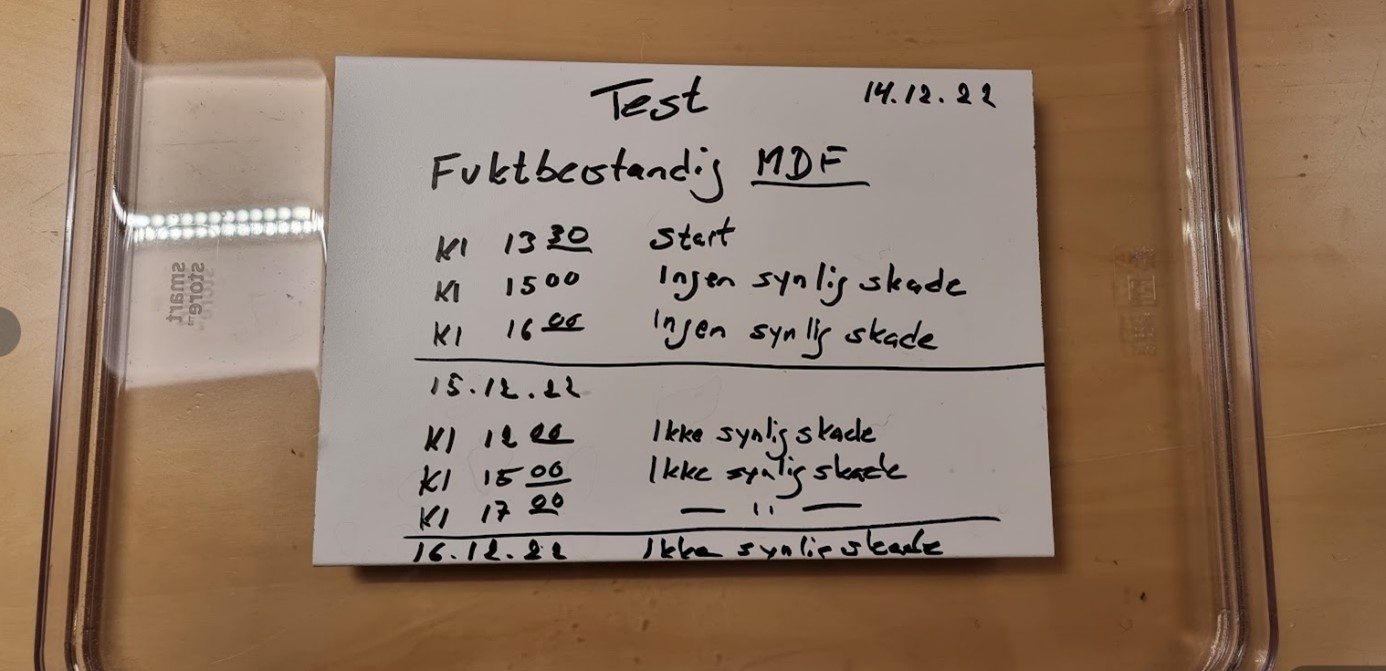 Test 14.12.22
Fuktbestandig MDF
Kl 13 30 Start
Kl 15 00 Ingen synlig skade
Kl 16 00 Ingen synlig skade
15.12.22
Kl 12 00 Ikke synlig skade
Kl 15 00 Ikke synlig skade
Kl 17 00 — 11 —
16.12.22 Ikke synlig skade
smart
store